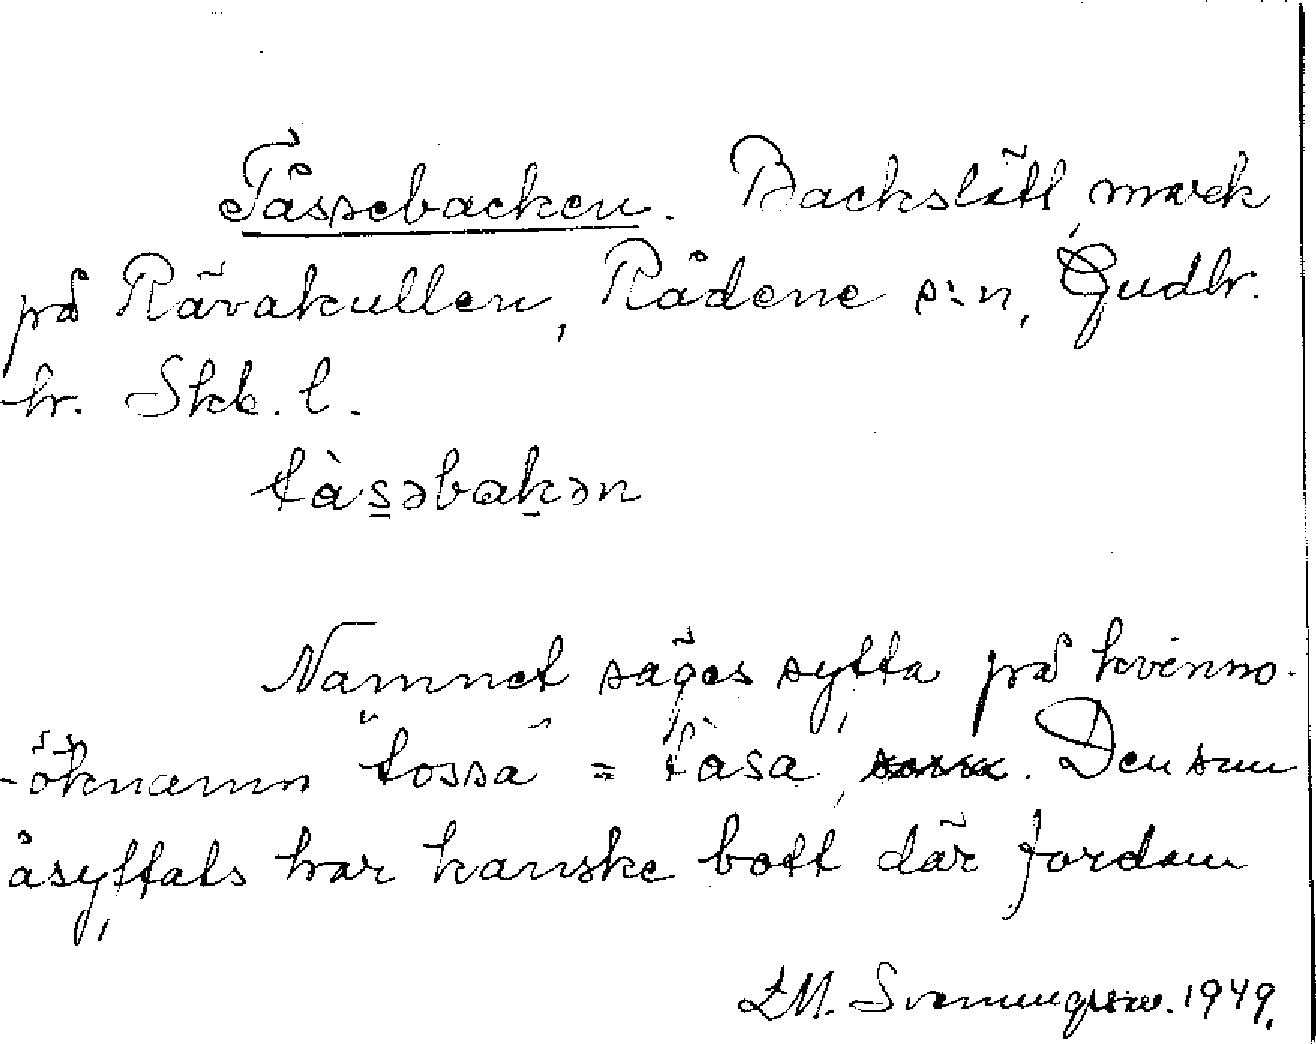 Tåssebacken. Backslätt, mark
på Rävakullen, Rådene s:n, Gudh.
hr. Skb. l.
tàs̲əbak̲ən
Namnet säges syfta på kvinno-
-öknamn "tossa" = tåsa. Den som
åsyftats har kanske bott där fordom
Svenningsson. 1949.